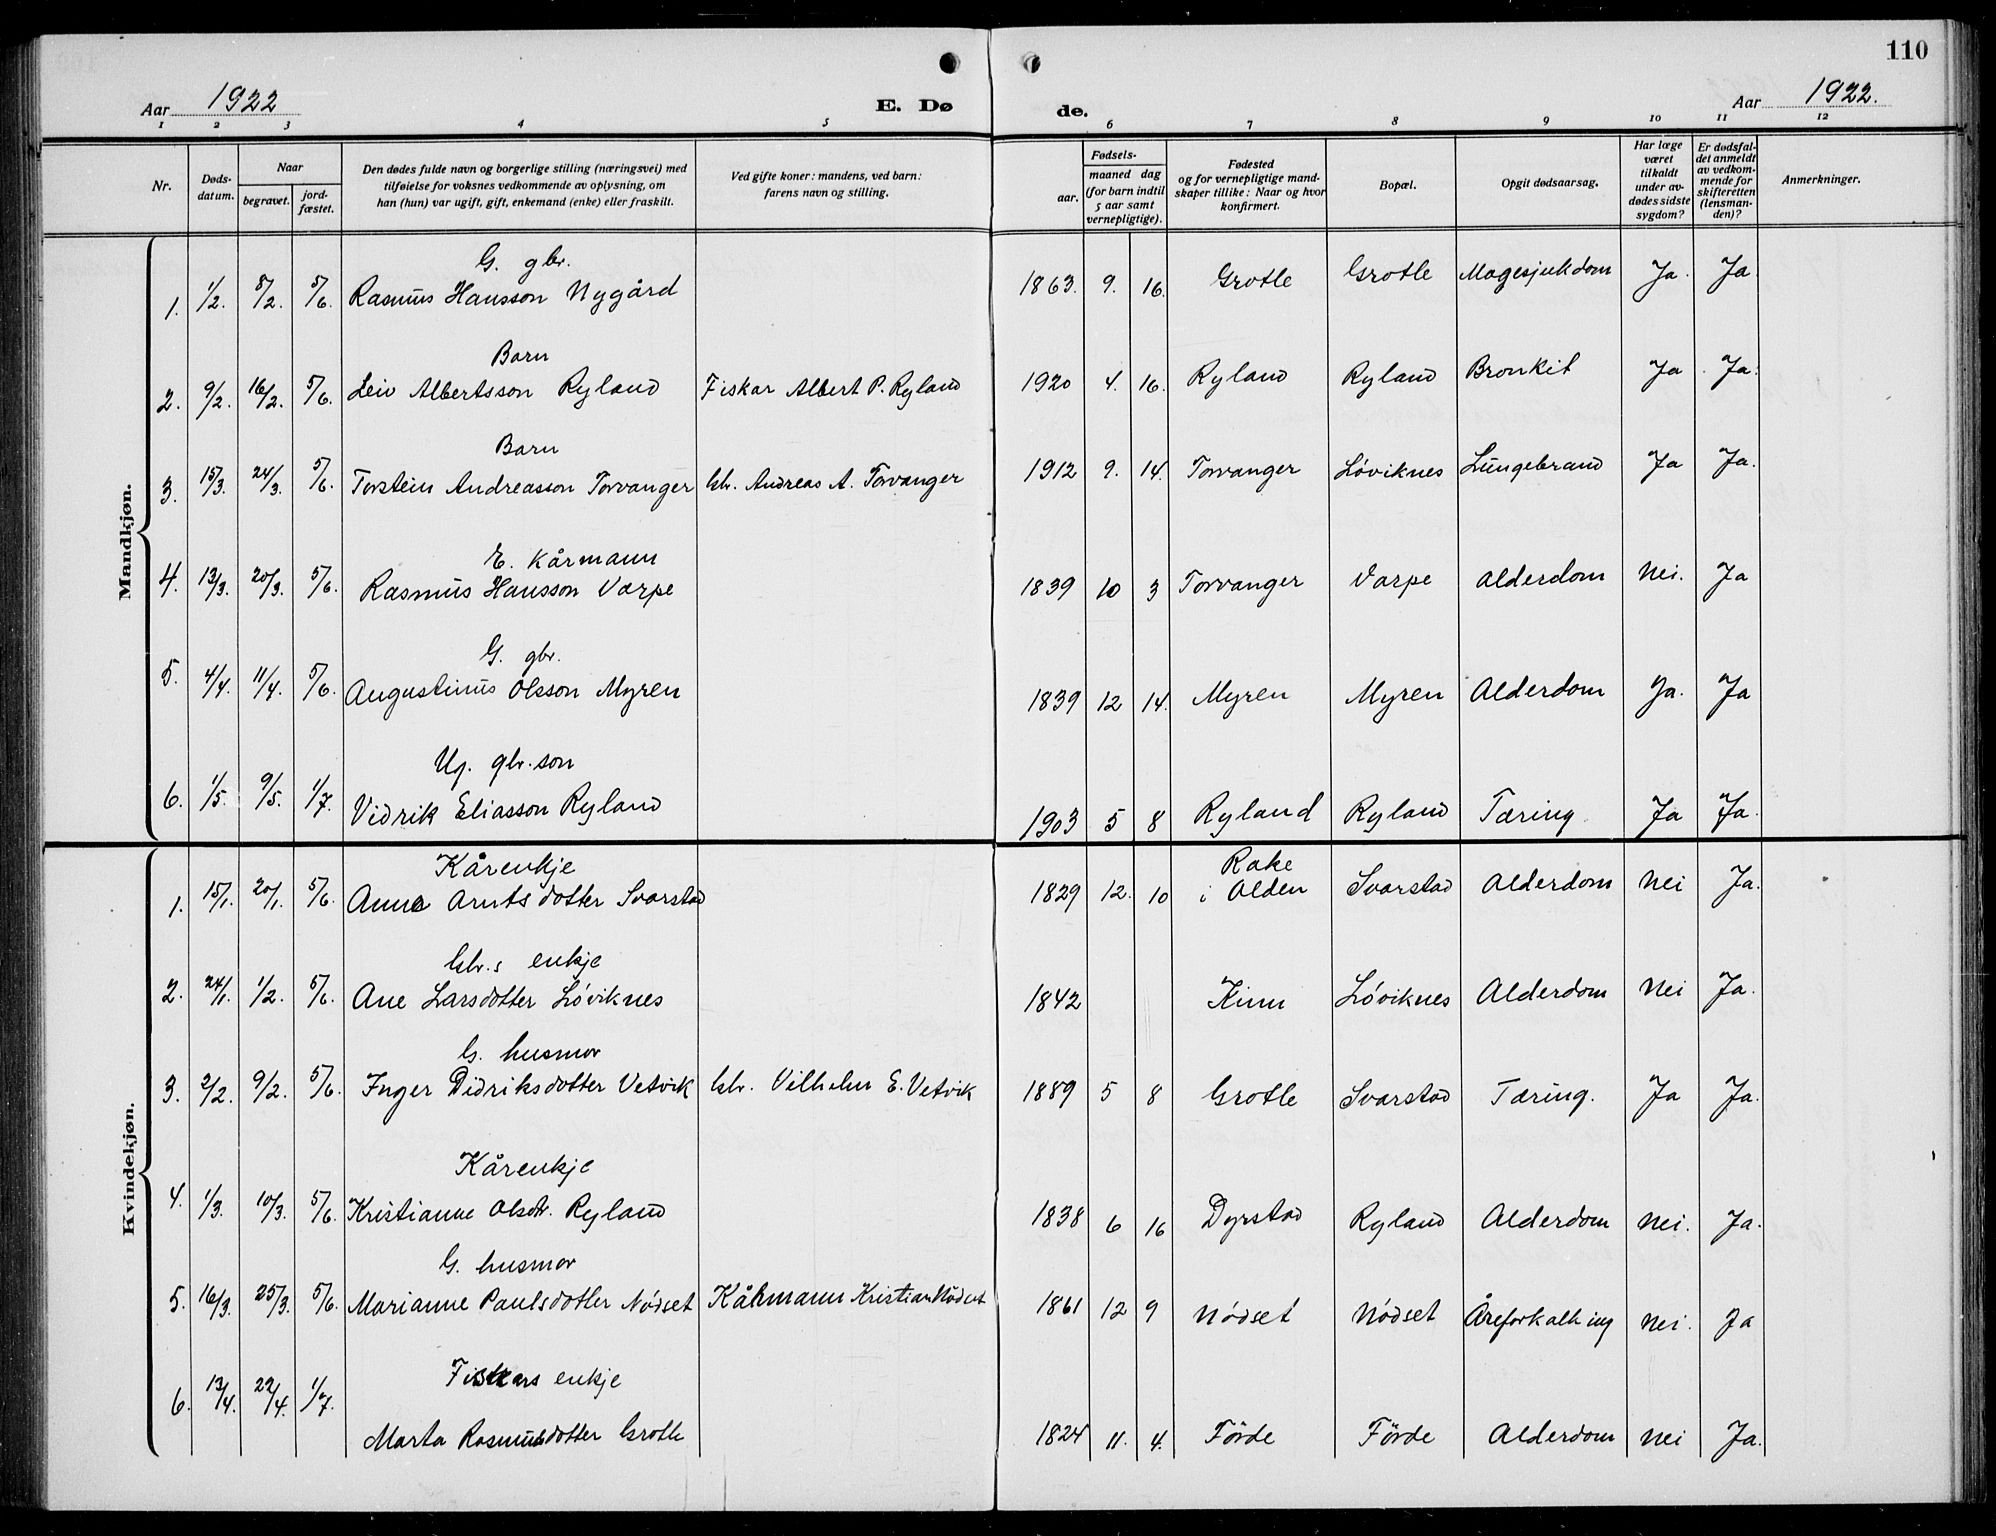 110
Aar 1922
E. Dø de.
Aar 1922.
1 2 3 4 5 6 7 8 9 10 11 12
Nr.
Døds-datum.
Naar
begravet.
jord-fæstet.
Den dødes fulde navn og borgerlige stilling (næringsvei) med
tilføielse for voksnes vedkommende av oplysning, om
han (hun) var ugift, gift, enkemand (enke) eller fraskilt.
Ved gifte koner: mandens, ved barn:
farens navn og stilling.
Fødsels-
aar.
maaned dag
(for barn indtil
5 aar samt
vernepligtige).
Fødested
og for vernepligtige mand-
skaper tillike: Naar og hvor
konfirmert.
Bopæl.
Opgit dødsaarsag.
Har læge
været
tilkaldt
under av-
dødes sidste
sygdom?
Er dødsfal-
det anmeldt
av vedkom-
mende for
skifteretten
(lensman-
den)?
Anmerkninger.
Mandkjøn.
G. gbr.
1. 1/2. 8/2. 5/6. Rasmus Hansson Nygård 1863. 9. 16. Grotle Grotle Magesjukdom Ja. Ja
Barn
2. 9/2. 16/2. 5/6. Leiv Albertsson Ryland Fiskar Albert P. Ryland 1920 4. 16. Ryland Ryland Bronkit Ja Ja.
Barn
3. 15/3. 24/3. 5/6. Torstein Andreasson Torvanger Gbr. Andreas A. Torvanger 1912 9. 14. Torvanger Løviknes Lungebrand Ja Ja.
E. Kårmann
4. 13/3. 20/3. 5/6. Rasmus Hansson Varpe 1839 10 3 Torvanger Varpe Alderdom Nei. Ja
G. gbr.
5. 4/4. 11/4. 5/6. Augustinus Olsson Myren 1839 12 14. Myren Myren Alderdom Ja. Ja
Ug. gbr.son
6. 1/5. 9/5. 1/7. Vidrik Eliasson Ryland 1903 5 8 Ryland Ryland Tæring Ja Ja.
Kvindekjøn.
Kårenkje Rake
1. 15/1. 20/1. 5/6. Anne Arntsdotter Svarstad 1829 12. 10 i Alden Svarstad Alderdom Nei Ja.
Gbr.s enkje
2. 24/1. 1/2. 5/6. Ane Larsdotter Løviknes 1842 Kinn Løviknes Alderdom Nei Ja.
G. husmor
3. 2/2. 9/2. 5/6. Inger Didriksdotter Vetvik Gbr. Vilhelm E. Vetvik 1889 5 8 Grotle Svarstad Tæring. Ja Ja.
Kårenkje
4. 1/3. 10/3. 5/6. Kristianne Olsdtr. Ryland 1838 6 16 Dyrstad Ryland Alderdom Nei. Ja.
G. husmor
5. 16/3. 25/3. 5/6. Marianne Paulsdotter Nødset Kårmann Kristian Nødset 1861 12 9 Nødset Nødset Åreforkalking Nei. Ja
Fiskars enkje
6. 13/4. 22/4. 1/7. Marta Rasmusdotter Grotle 1824 11. 4. Førde Førde Alderdom Nei Ja.